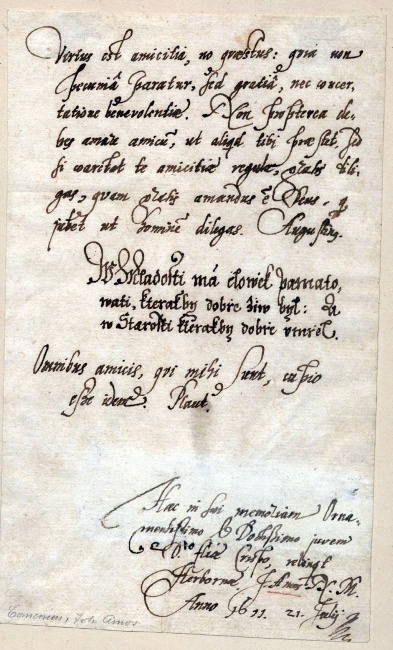 Virtus est amicitia, no quæstus: quia non
pecuniâ paratur, sed gratiâ, nec concer,
tatione benevolentiæ. Non propterea de,
bes amare amicũ, ut aliqd tibi præstet, sed
si vocet te amicitiæ regula,
gas, quam amandus ē Deus,
jubēt ut hominē diligas. Augustinꝰ.
W Mladosti má člowek pamato,
wati, kterakby dobře žiw byl: A
w Starosti kterakby dobře vmřel.
Omnibus amicis, qvi mihi sunt, cupio
esse idem. Plaut.
Hac in sui memoriam Orna,
mentissimo & Doctissimo juveni
Crispo, relinqt
Herbornæ J. Amos N. M.
Anno 1611 21. Julij
Comenius, Joh. Amos